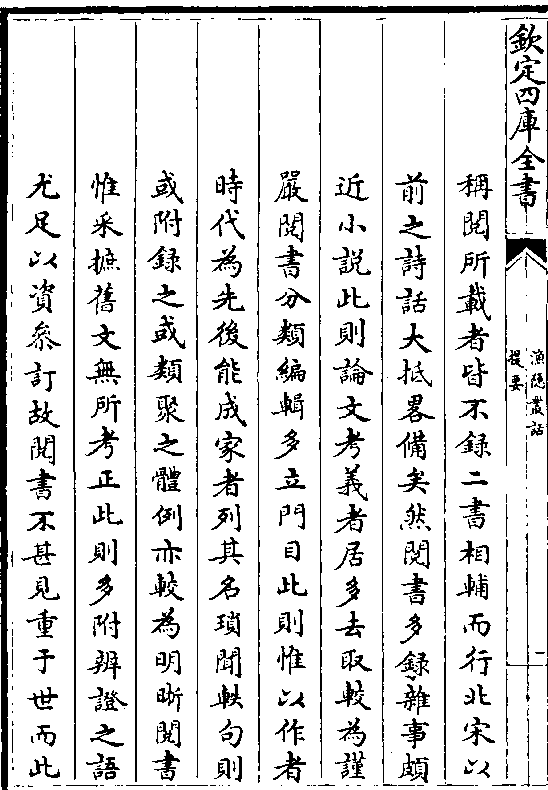 欽定四庫全書
漁隱叢話
提要
二
稱閱所載者皆不錄二書相輔而行北宋以
前之詩話大抵畧備矣然閱書多錄雜事頗
近小說此則論文考義者居多去取較為謹
嚴閱書分類編輯多立門目此則惟以作者
時代為先後能成家者列其名瑣聞軼句則
或附錄之或類聚之體例亦較為明晰閱書
惟采摭舊文無所考正此則多附辨證之語
尤足以資參訂故閱書不甚見重于世而此